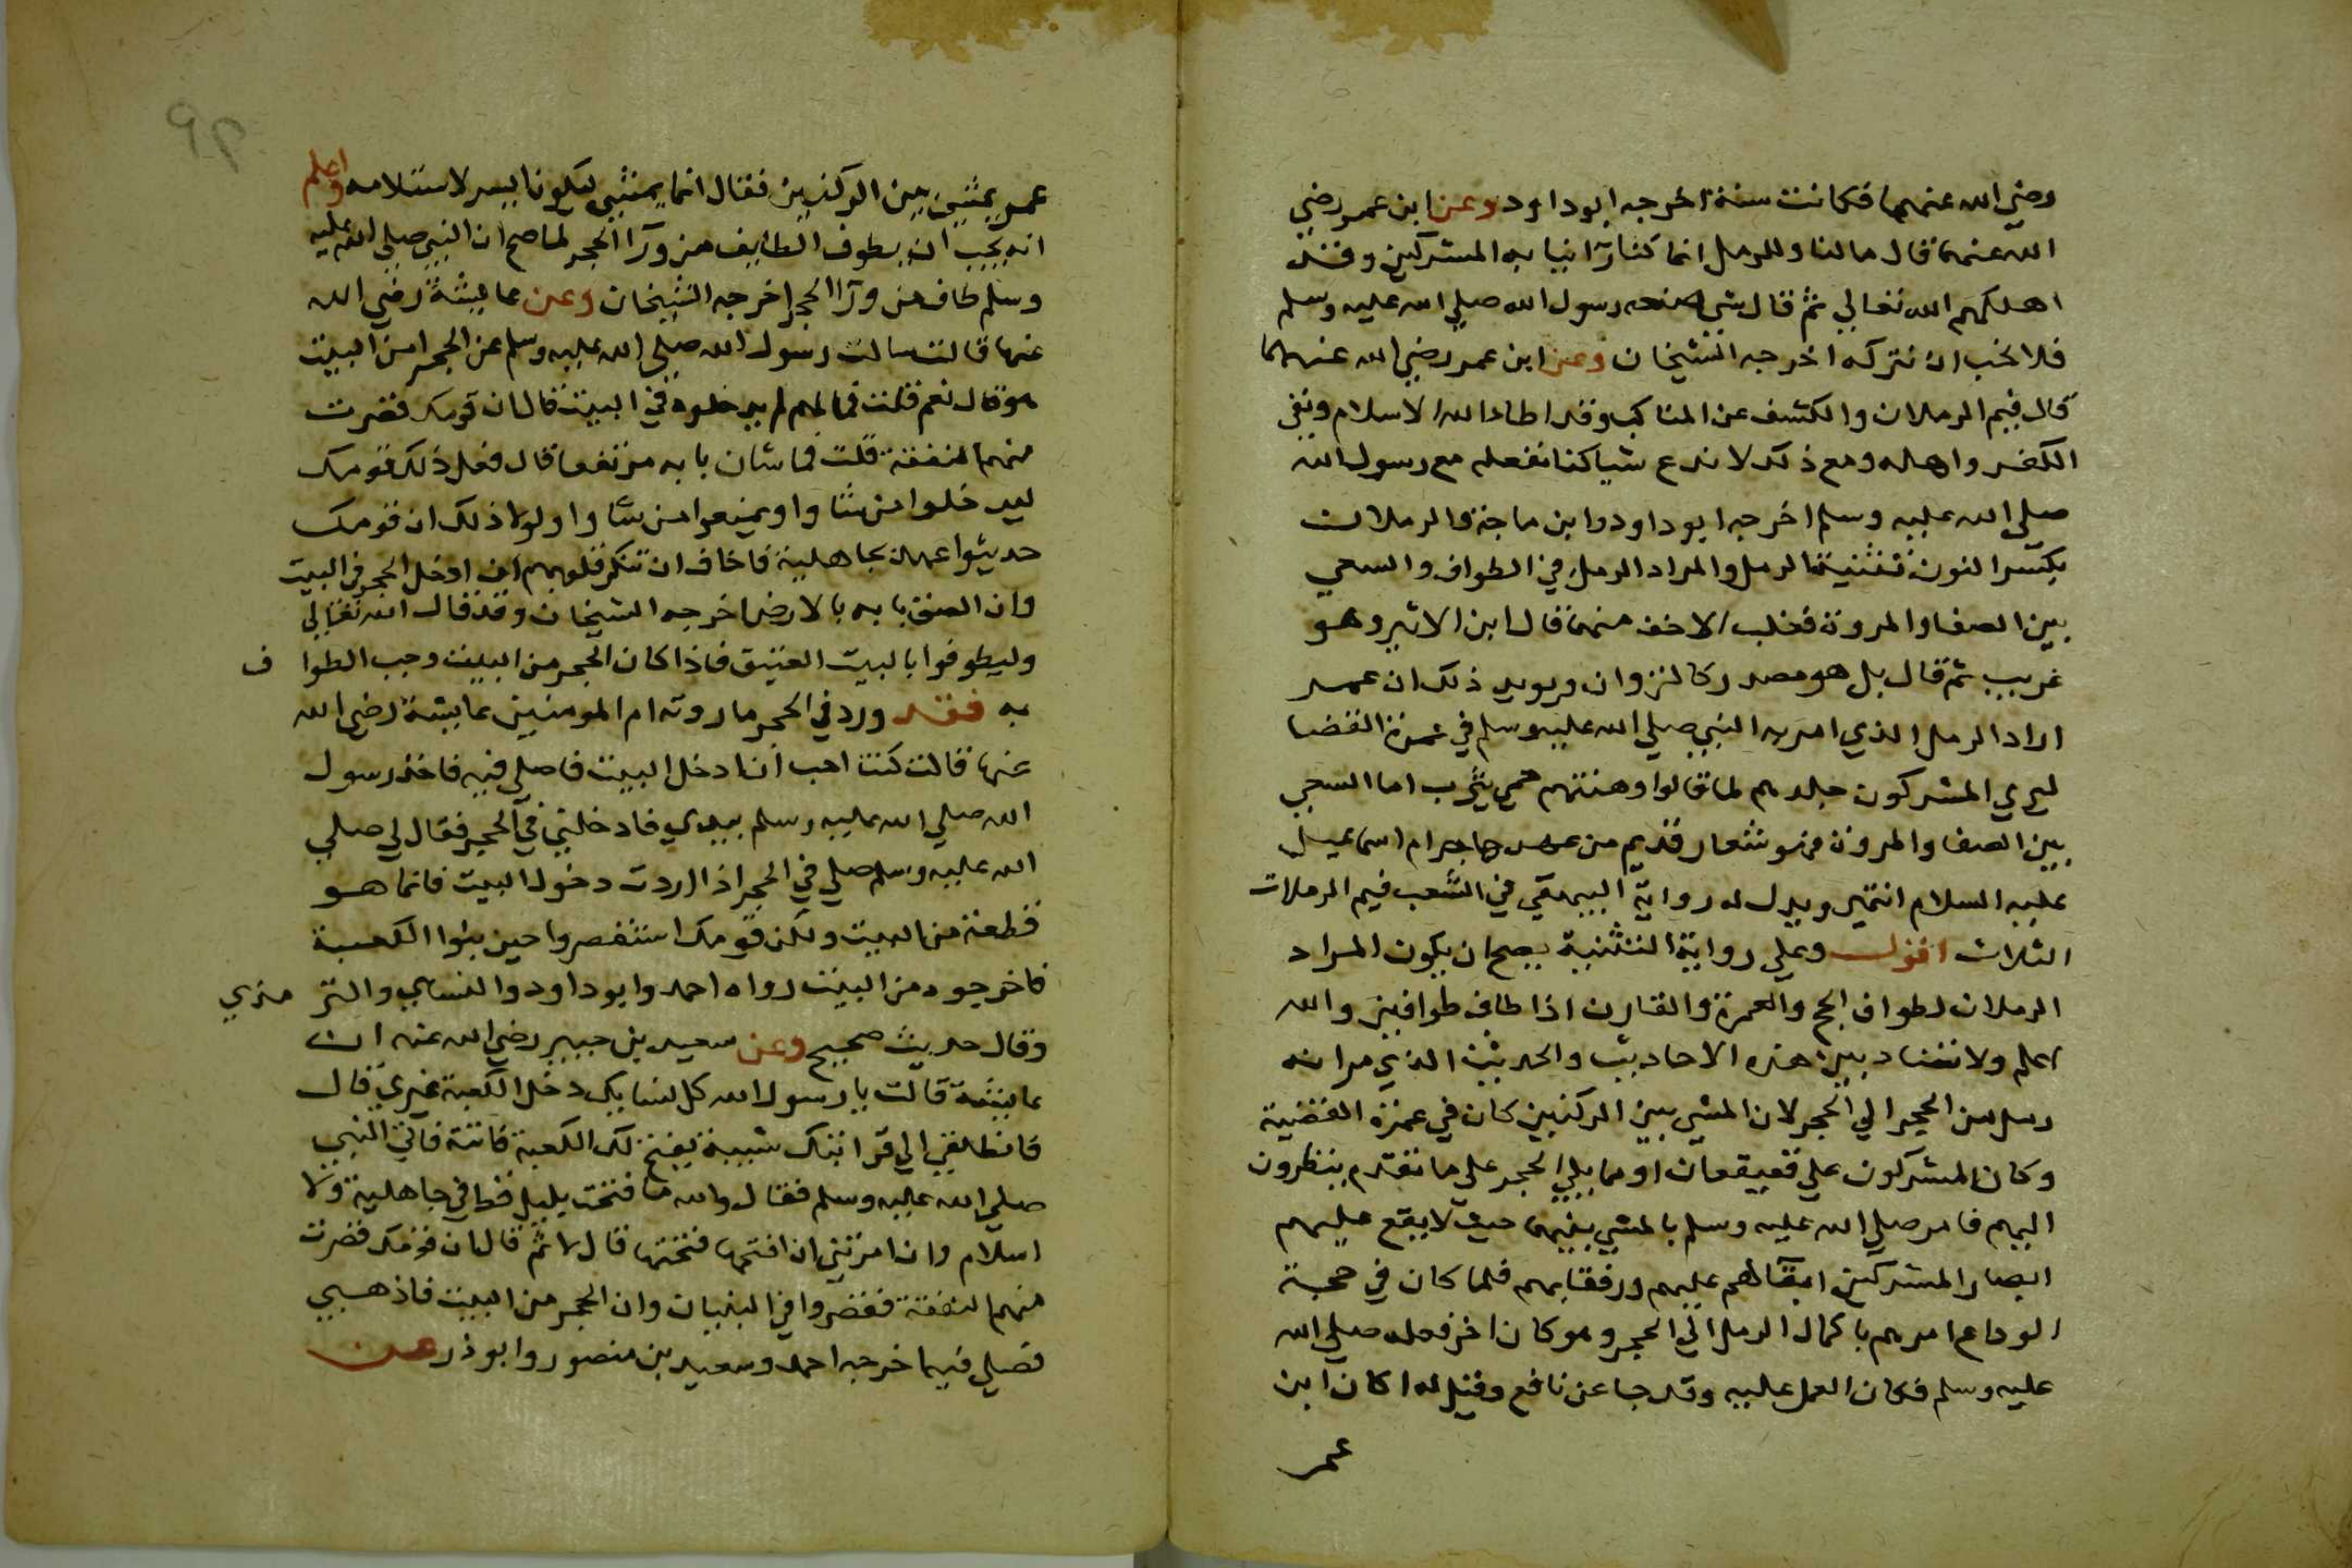 رضي الله عنهما فكانت سنة اخرجه ابو داود وعن ابن عمر رضي
الله عنهما قال مالنا وللرمل انما كنا راينا به المشركين وقد
اهلكهم الله تعالي ثم قال شي صنعه رسول الله صلي الله عليه وسلم
فلا نحب ان نتركه اخرجه الشيخان وعن ابن عمر رضي الله عنهما
قال فيم الرملان والكشف عن المناكب وقد اطا الله الاسلام ونفي
الكفر واهله ومع ذلك لا ندع شيا كنا نفعله مع رسول الله
صلي الله عليه وسلم اخرجه ابو داود وابن ماجة والرملان
بكسر النون تثنية الرمل والمراد الرمل في الطواف والسعي
بين الصفا والمروة فغلب الاخف منهما قال ابن الاثير وهو
غريب ثم قال بل هو مصدر كالنزوان ويويد ذلك ان عمر
اراد الرمل الذي امر به النبي صلي الله عليه وسلم في عمرة القضا
ليري المشركون جلدهم لما قالوا وهنتهم حمي يثرب اما السعي
بين الصفا والمروة فهو شعار قديم من عهد هاجر ام اسماعيل
عليه السلام انتهي ويدل له رواية البيهقي في الشعب فيم الرملات
الثلاث اقول وعلي رواية التثنية يصح ان يكون المراد
الرملان لطواف الحج والعمرة والقارن اذا طاف طوافين والله
اعلم ولا تضاد بين هذه الاحاديث والحديث الذي مر انه
رمل من الحجر الي الحجر لان المشي بين الركنين كان في عمرة القضية
وكان المشركون علي قعيقعان او مما يلي الحجر علي ما تقدم ينظرون
اليهم فامر صلي الله عليه وسلم بالمشي بينهما حيث لا يقع عليهم
ابصار المشركين ابقآ لهم عليهم ورفقا بهم فلما كان في حجة
الوداع امرهم باكمال الرمل الي الحجر وهو كان اخر فعله صلي الله
عليه وسلم فكان العمل عليه وقد جا عن نافع وقيل له اكان ابن
عمر
عمر يمشي بين الركنين فقال انما يمشي ليكون ايسر لاستلامه واعلم
انه يجب ان يطوف الطايف من ورآ الحجر لما صح ان النبي صلي الله عليه
وسلم طاف من ورآ الحجر اخرجه الشيخان وعن عايشة رضي الله
عنها قالت سالت رسول الله صلي الله عليه وسلم عن الحجر امن البيت
هو قال نعم قلت فما لهم لم يدخلوه في البيت قال ان قومك قصرت
منهم النفقة قلت فما شان بابه مرتفعا قال فعل ذلك قومك
ليدخلوا من شاوا ويمنعوا من شاوا ولولا ذلك ان قومك
حديثوا عهد بجاهلية فاخاف ان تنكر قلوبهم ان ادخل الحجر في البيت
وان الصق بابه بالارض اخرجه الشيخان وقد قال الله تعالي
وليطوفوا بالبيت العتيق فاذا كان الحجر من البيت وجب الطواف
به فقد ورد في الحجر ما روته ام المومنين عايشة رضي الله
عنها قالت كنت احب ان ادخل البيت فاصلي فيه فاخذ رسول
الله صلي الله عليه وسلم بيدي فادخلني في الحجر فقال لي صلي
الله عليه وسلم صلي في الحجر اذا اردت دخول البيت فانما هو
قطعة من البيت ولكن قومك استقصروا حين بنوا الكعبة
فاخرجوه من البيت رواه احمد وابو داود والنساي والترمذي
وقال حديث صحيح وعن سعيد بن جبير رضي الله عنه ان
عايشة قالت يا رسول الله كل نسايك دخل الكعبة غيري قال
فانطلقي الي قرابتك شيبة يفتح لك الكعبة فاتته فاتي النبي
صلي الله عليه وسلم فقال والله ما فتحت بليل قط في جاهلية ولا
اسلام وان امرتني ان افتحها فتحتها قال لا ثم قال ان قومك قصرت
منهم النفقة فقصروا في البنيان وان الحجر من البيت فاذهبي
فصلي فيه اخرجه احمد وسعيد بن منصور وابو ذر عن